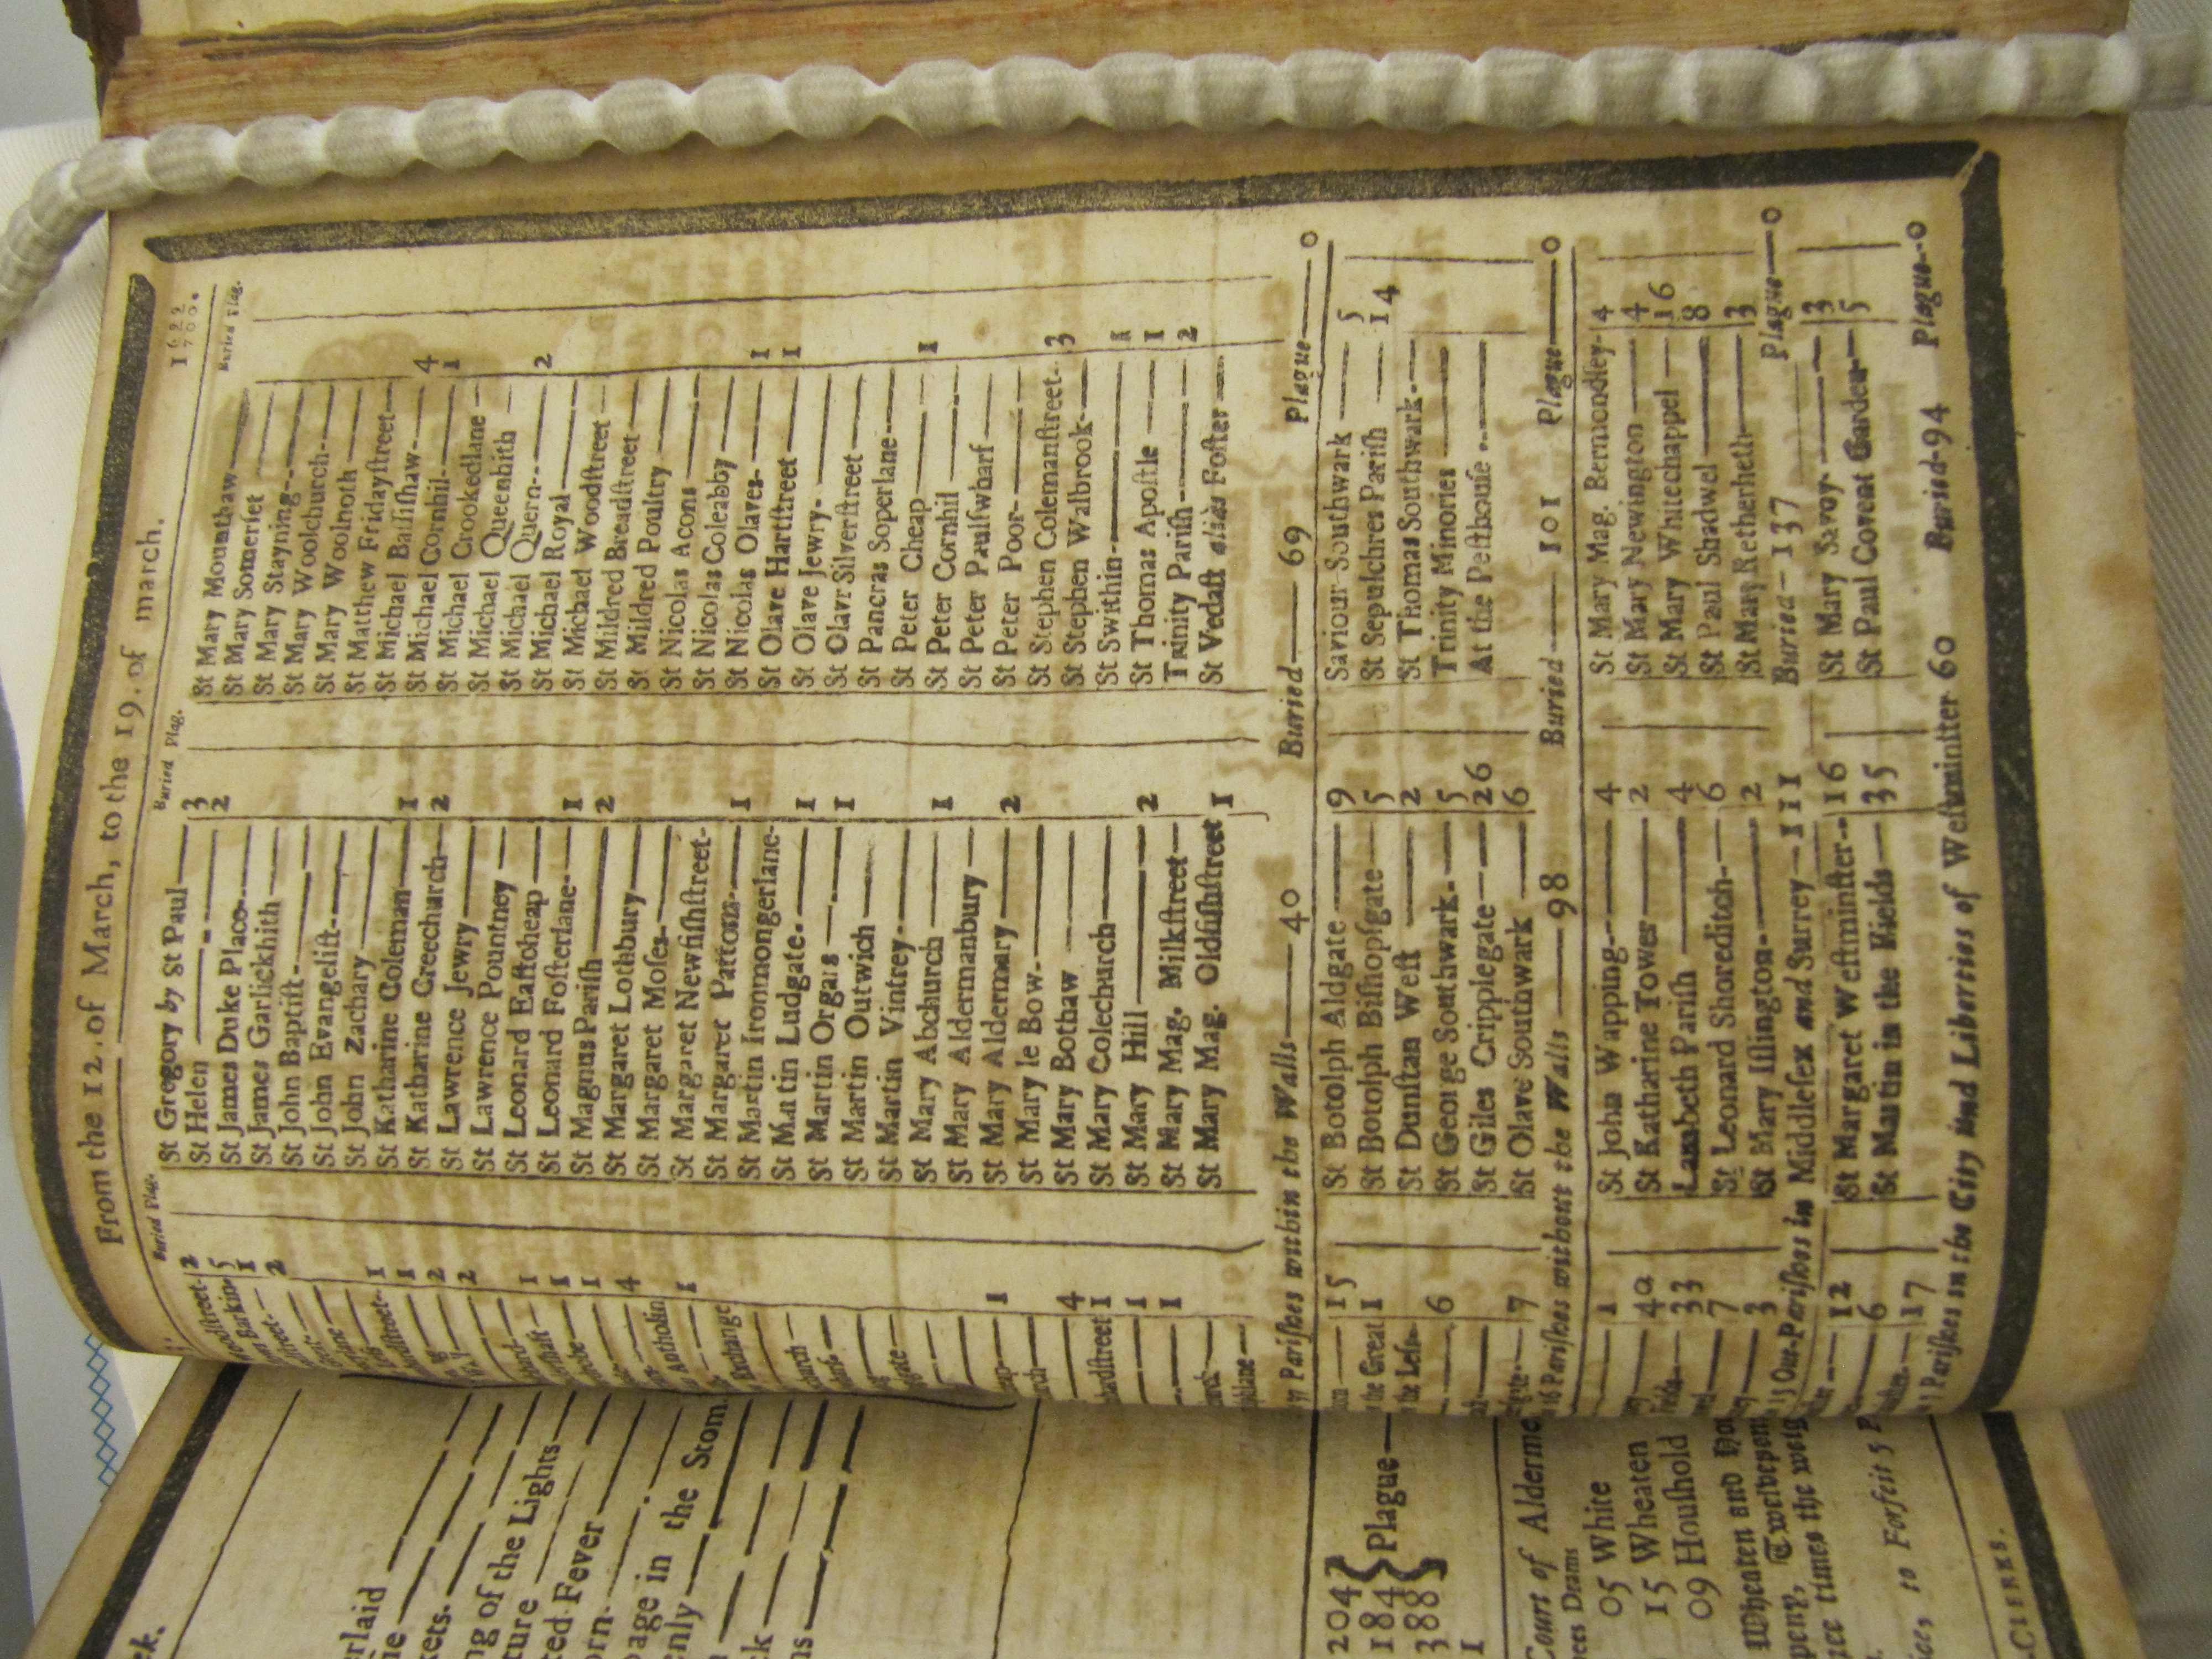 From the 12. of March, to the 19. of march.
1699
700.
Buried Plag.
Buried Plag.
Buried Plag.
oodſtreet- 2
Barkin- 5
1
ſtreet- 2
ſtreet- 1
1
2
2
1
1
1
4
Antholin
1
Exchange
1
4
1
1
1
St Gregory by St Paul 3
St Helen 2
St James Duke Place
St James Garlickhith
St John Baptiſt
St John Evangeliſt
St John Zachary
St Katharine Coleman 1
St Katharine Creechurch 2
St Lawrence Jewry
St Lawrence Pountney
St Leonard Eaſtcheap
St Leonard Foſterlane 1
St Magnus Pariſh 2
St Margaret Lothbury
St Margaret Moſes
St Margaret Newfiſhſtreet
St Margaret Pattons 1
St Martin Ironmongerlane
St Martin Ludgate 1
St Martin Orgars 1
St Martin Outwich
St Martin Vintrey
St Mary Abchurch 1
St Mary Aldermanbury
St Mary Aldermary 2
St Mary le Bow
St Mary Bothaw
St Mary Colechurch
St Mary Hill 2
St Mary Mag. Milkſtreet
St Mary Mag. Oldfiſhſtreet 1
St Mary Mounthaw
St Mary Someriet
St Mary Stayning
St Mary Woolchurch
St Mary Woolnoth
St Matthew Fridayſtreet
St Michael Baſſiſhaw 4
St Michael Cornhil 1
St Michael Crookedlane
St Michael Queenhith
St Michael Quern 2
St Michael Royal
St Michael Woodſtreet
St Mildred Breadſtreet
St Mildred Poultry
St Nicolas Acons
St Nicolas Coleabby
St Nicolas Olaves 1
St Olave Hartſtreet 1
St Olave Jewry
St Olave Silverſtreet
St Pancras Soperlane
St Peter Cheap 1
St Peter Cornhil
St Peter Paulſwharf
St Peter Poor
St Stephen Colemanſtreet 3
St Stephen Walbrook
St Swithin 1
St Thomas Apoſtle 1
Trinity Pariſh 2
St Vedaſt aliàs Foſter
Pariſhes within the Walls 40 Buried 69 Plague 0
15
the Great 1
the Leſs
6
7
St Botolph Aldgate 9
St Botolph Biſhopſgate 5
St Dunſtan Weſt 2
St George Southwark 5
St Giles Cripplegate 26
St Olave Southwark 6
Saviour Southwark 5
St Sepulchres Pariſh 14
St Thomas Southwark
Trinity Minories
At the Peſthouſe
16 Pariſhes without the Walls 98 Buried 101 Plague 0
1
40
33
7
3
St John Wapping 4
St Katharine Tower 2
Lambeth Pariſh 4
St Leonard Shoreditch 6
St Mary Iſlington 2
St Mary Mag. Bermondſey 4
St Mary Newington 4
St Mary Whitechappel 16
St Paul Shadwel 8
St Mary Retherheth 3
15 Out-Pariſhes in Middleſex and Surrey 111 Buried 137 Plague 0
12
6
17
St Margaret Weſtminſter 16
St Martin in the Fields 35
St Mary Savoy 3
St Paul Covent Garden 5
Pariſhes in the City and Liberties of Weſtminſter 60 Buried 94 Plague 0
ek.
erlaid
kets.
ng of the Lights
ture
ted Fever
orn
page in the Stom
enly
204
184
388
1
Plague
Court of Alderme
05 White
15 Wheaten
09 Houſhold
Wheaten and Ho
peny, Twelvepen
ree times the weig
ice, to Forfeit 5 P
CLERKS.